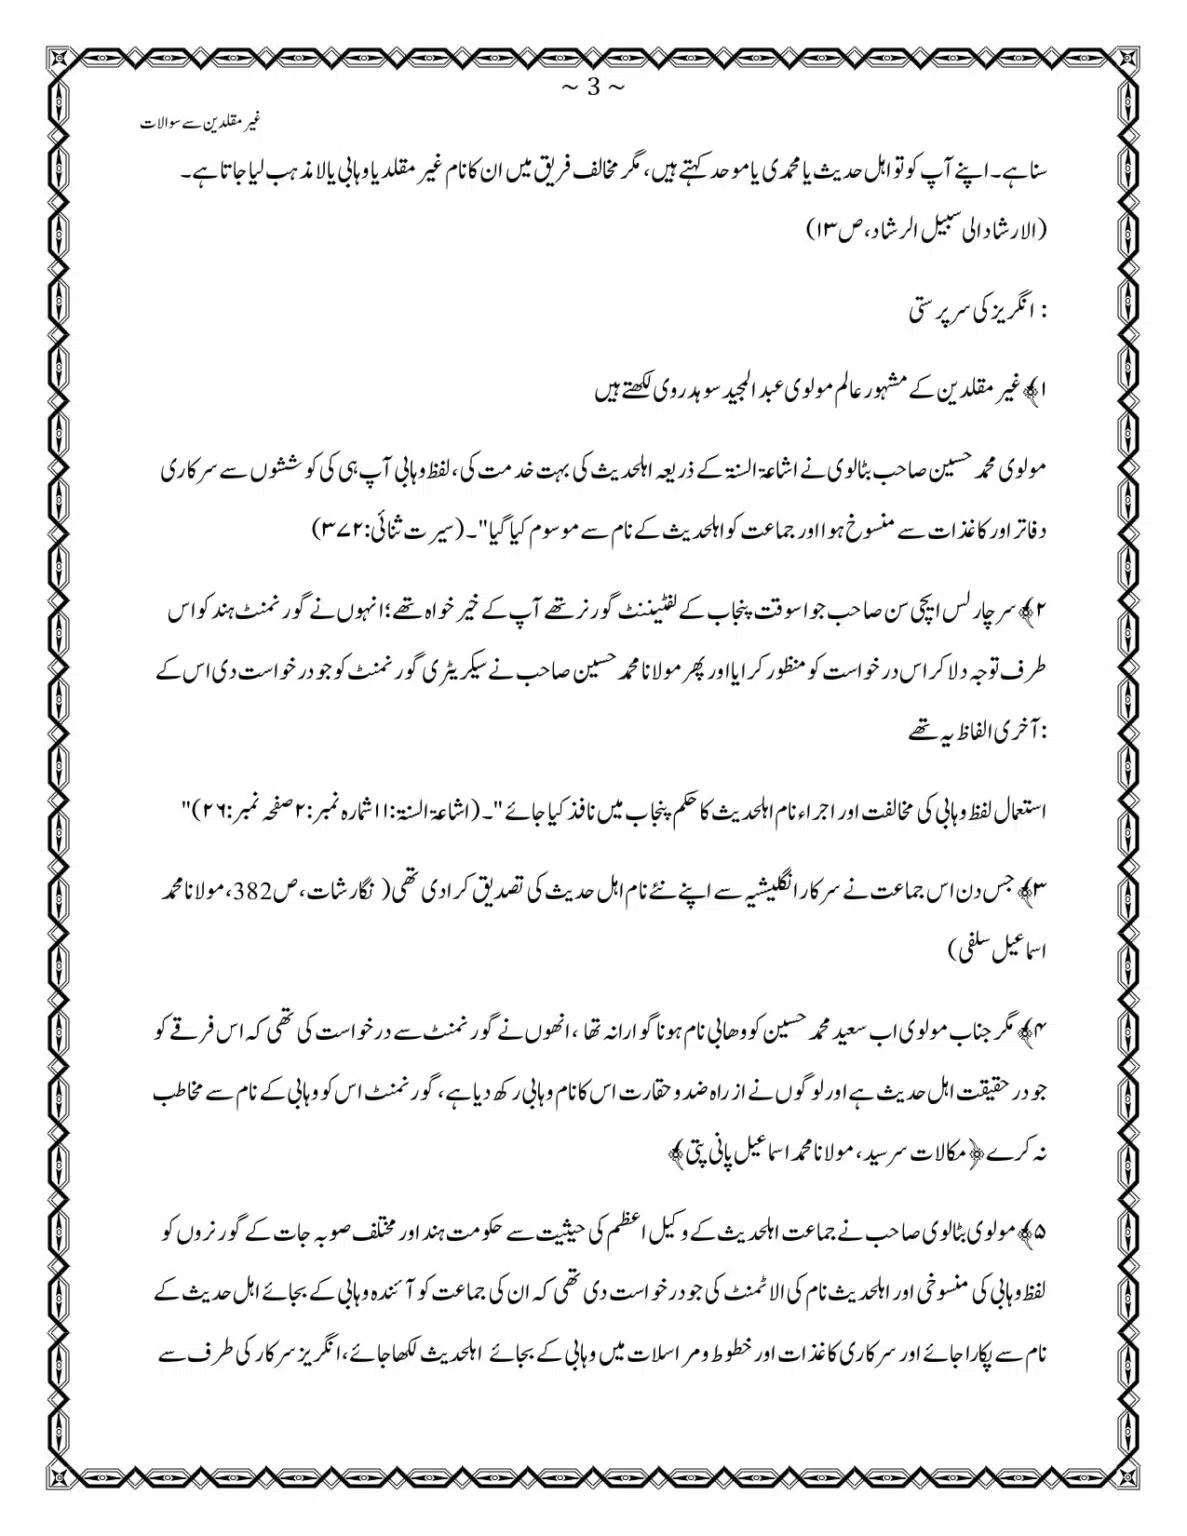 ~ 3 ~
غیر مقلدین سے سوالات
سنا ہے۔ اپنے آپ کو تو اہل حدیث یا محمدی یا موحد کہتے ہیں، مگر مخالف فریق میں ان کا نام غیر مقلد یا وہابی یا لا مذہب لیا جاتا ہے۔
(الارشاد الی سبیل الرشاد، ص۱۳)
: انگریز کی سرپرستی
۱﴾ غیر مقلدین کے مشہور عالم مولوی عبد المجید سوہدروی لکھتے ہیں
مولوی محمد حسین صاحب بٹالوی نے اشاعۃ السنۃ کے ذریعہ اہلحدیث کی بہت خدمت کی، لفظ وہابی آپ ہی کی کوششوں سے سرکاری
دفاتر اور کاغذات سے منسوخ ہوا اور جماعت کو اہلحدیث کے نام سے موسوم کیا گیا"۔ (سیرت ثنائی: ۳۷۲)
۲﴾ سر چارلس ایچی سن صاحب جو اسوقت پنجاب کے لفٹیننٹ گورنر تھے آپ کے خیر خواہ تھے؛ انہوں نے گورنمنٹ ہند کو اس
طرف توجہ دلا کر اس درخواست کو منظور کرایا اور پھر مولانا محمد حسین صاحب نے سیکریٹری گورنمنٹ کو جو درخواست دی اس کے
: آخری الفاظ یہ تھے
استعمال لفظ وہابی کی مخالفت اور اجراء نام اہلحدیث کا حکم پنجاب میں نافذ کیا جائے"۔ (اشاعۃ السنۃ: ۱۱ شمارہ نمبر: ۲ صفحہ نمبر: ۲۶)"
۳﴾ جس دن اس جماعت نے سرکار انگلیشیہ سے اپنے نئے نام اہل حدیث کی تصدیق کرا دی تھی( نگارشات، ص382، مولانا محمد
اسماعیل سلفی)
۴﴾ مگر جناب مولوی اب سعید محمد حسین کو وھابی نام ہونا گوارا نہ تھا ، انھوں نے گورنمنٹ سے درخواست کی تھی کہ اس فرقے کو
جو در حقیقت اہل حدیث ہے اور لوگوں نے از راہ ضد و حقارت اس کا نام وہابی رکھ دیا ہے، گورنمنٹ اس کو وہابی کے نام سے مخاطب
نہ کرے ﴿ مکالات سرسید، مولانا محمد اسماعیل پانی پتی﴾
۵﴾ مولوی بٹالوی صاحب نے جماعت اہلحدیث کے وکیل اعظم کی حیثیت سے حکومت ہند اور مختلف صوبہ جات کے گورنروں کو
لفظ وہابی کی منسوخی اور اہلحدیث نام کی الاٹمنٹ کی جو درخواست دی تھی کہ ان کی جماعت کو آئندہ وہابی کے بجائے اہل حدیث کے
نام سے پکارا جائے اور سرکاری کاغذات اور خطوط و مراسلات میں وہابی کے بجائے اہلحدیث لکھا جائے، انگریز سرکار کی طرف سے